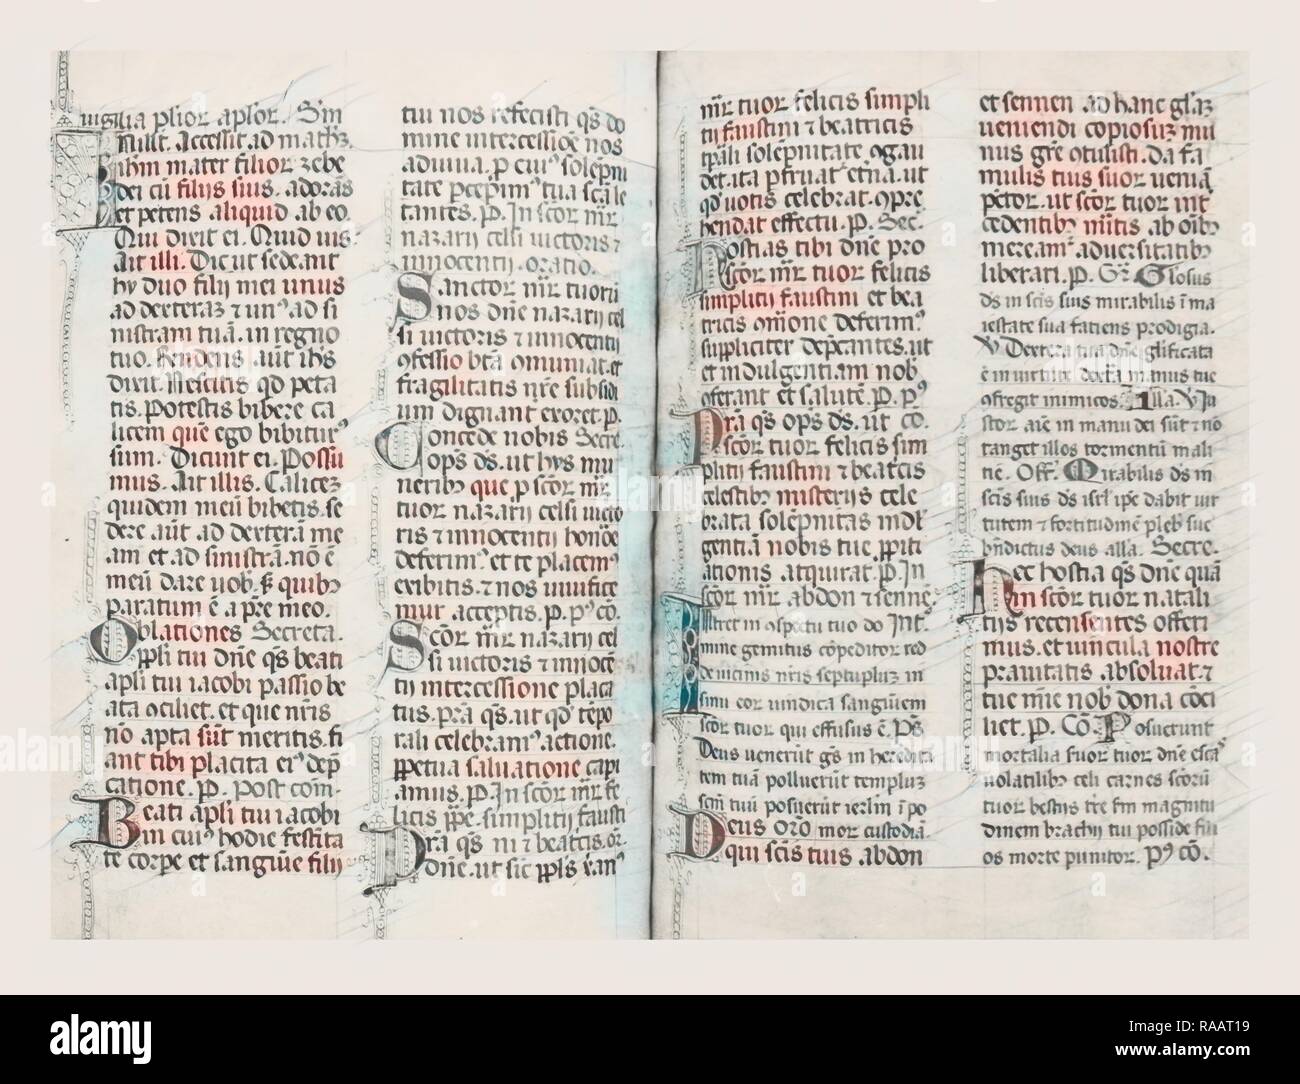 uigilia plior aplor. Sm
illst. Accessit ad math'z
ihm mater filior zebe
dei cū filijs suis. adorās
et petens aliquid ab eo.
Qui dixit ei. Quid uis.
Ait illi. Dic ut sedeant
hy duo filij mei unus
ad dexteraz ⁊ un' ad si
nistram tuā. in regno
tuo. Rendens aut ihs
dixit. Nescitis qd peta
tis. Potestis bibere ca
licem quē ego bibitur'
sum. Dicunt ei. Possu
mus. Ait illis. Calicez
quidem meū bibetis. se
dere aūt ad dexterā me
am et ad sinistrā. nō ē
meū dare uob. s quibz
paratum ē a pre meo.
Oblationes Secreta.
appli tui dne qs beati
apli tui iacobi passio be
ata ociliet. et que nris
nō apta sūt meritis. fi
ant tibi placita ei' dep
catione. P. Post com.
Beati apli tui iacobi
dn cui' hodie festiuita
te corpe et sanguīe filij
tui nos refecisti qs do
mine intercessiōe nos
adiuua. p cui' solepni
tate pcepim' tua scā le
tantes. P. In scor mr
nazarij celsi uictoris ⁊
innocentij. oratio.
Sanctor mr tuorū
nos dne nazarij cel
si uictoris ⁊ innocentij
ofessio btā omuniat. et
fragilitatis nre subsidi
um dignant exoret. P.
Concede nobis Secre.
ops ds. ut hys mu
neribz que p scor mr
tuor nazarij celsi uicto
ris ⁊ innocentij honōe
deferim' et te placem'
exibitis. ⁊ nos uiuifice
mur acceptis. p. p' cō.
Scor mr nazarij cel
si uictoris ⁊ innocē
tij intercessione placa
tus. pra qs. ut qd tēpo
rali celebram' actione.
ppetua saluatione capi
amus. P. In scor mr fe
licis ppe. simplitij fausti
Pra qs ni ⁊ beatcis. or.
Done. ut sic ppls xan'
mr tuor felicis simpli
tij faustini ⁊ beatricis
tpali solepnitate ogau
det. ita pfruat etna. ut
qd uotis celebrat. opre
hendat effectu. P. Sec.
Hostias tibi dne pro
scor mr tuor felicis
simplitij faustini et bea
tricis omōione deferim'
suppliciter depcantes. ut
et indulgentiam nob
oferant et salutē. P. p'
Pra qs ops ds. ut co.
scor tuor felicis sim
plitij faustini ⁊ beatcis
celestibz misterijs cele
brata solepnitas indl
gentiā nobis tue ppiti
ationis atquirat. P. In
scor mr abdon ⁊ sennē
Intret in ospectu tuo do Int.
mine gemitus opeditor red
de uicinis nris septupluz in
sinu eor uindica sanguīem
scor tuor qui effusus ē. Ps
Deus uenerūt gs in heredita
tem tuā polluerūt templuz
scm tuū posuerūt ierlm ī po
Deus oro mor custodiā.
qui scis tuis abdon
et sennen ad hanc gl'az
ueniendi copiosuz mu
nus gre otulisti. da fa
mulis tuis suor ueniā
pctor. ut scor tuor int
cedentibz mitis ab oibz
meream' aduersitatibz
liberari. P. Gr. Glosus
ds in scis suis mirabilis ī ma
iestate sua fatiens prodigia.
V. Dextera tua dne glificata
ē in uirtute dextra manus tue
ofregit inimicos. Alla. V Iu
stor aie in manu dei sūt ⁊ no
tanget illos tormentū mali
tie. Off. Mirabilis ds in
scis suis ds isrl ipe dabit uir
tutem ⁊ fortitudinē pleb sue
bndictus deus alla. Secre.
Hec hostia qs dne quā
in scor tuor natali
tijs recensentes offeri
mus. et uincula nostre
prauitatis absoluat. ⁊
tue mie nob dona cōci
liet. P. Cō. Posuerunt
mortalia suor tuor dne esca'
uolatilibz celi carnes scorū
tuor bestijs tre fm magnitu
dinem brachij tui posside fili
os morte punitor. P' cō.
alamy
Image ID: RAAT19
www.alamy.com